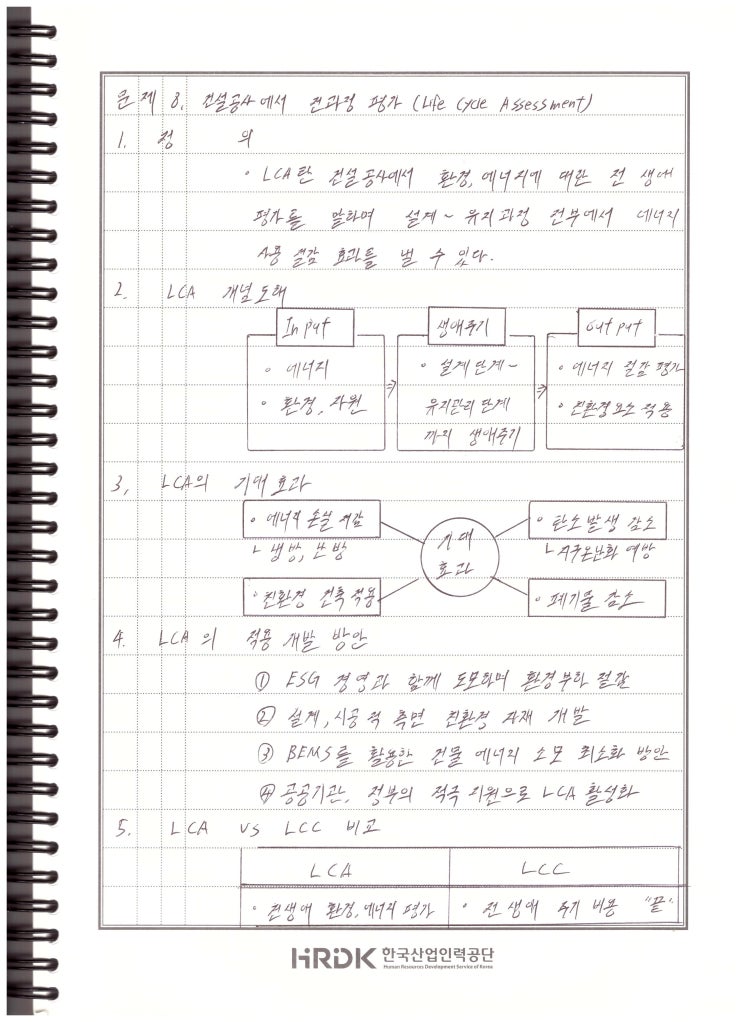 문제 8. 건설공사에서 전과정 평가 (Life Cycle Assessment)
1. 정 의
• LCA란 건설공사에서 환경, 에너지에 대한 전 생애
평가를 말하며 설계 ~ 유지과정 전부에서 에너지
사용 절감 효과를 낼 수 있다.
2. LCA 개념도해
Input 생애주기 output
• 에너지 • 설계단계 ~ • 에너지 절감 평가
• 환경, 자원 유지관리단계 • 친환경요소 적용
까지 생애주기
3. LCA의 기대효과
• 에너지 손실 저감 • 탄소발생 감소
ㄴ 냉방, 난방 기대 ㄴ 지구온난화 예방
효과
• 친환경 건축 적용 • 폐기물 감소
4. LCA의 적용 개발 방안
① ESG 경영과 함께 도모하며 환경부하 절감
② 설계, 시공적 측면 친환경 자재 개발
③ BEMS를 활용한 건물 에너지 소모 최소화 방안
④ 공공기관, 정부의 적극 지원으로 LCA 활성화
5. LCA vs LCC 비교
LCA LCC
• 전생애 환경, 에너지 평가 • 전 생애 주기 비용 "끝"
HRDK 한국산업인력공단
Human Resources Development Service of Korea